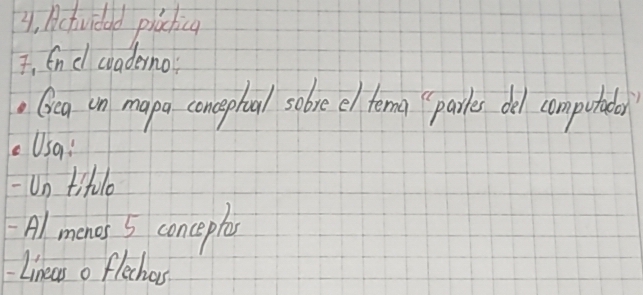 4, Actividad práctica
7, En el cuaderno:
• Crea un mapa conceptual sobre el tema "partes del computador"
• Usa:
- Un título
- Al menos 5 conceptos
- Líneas o flechas